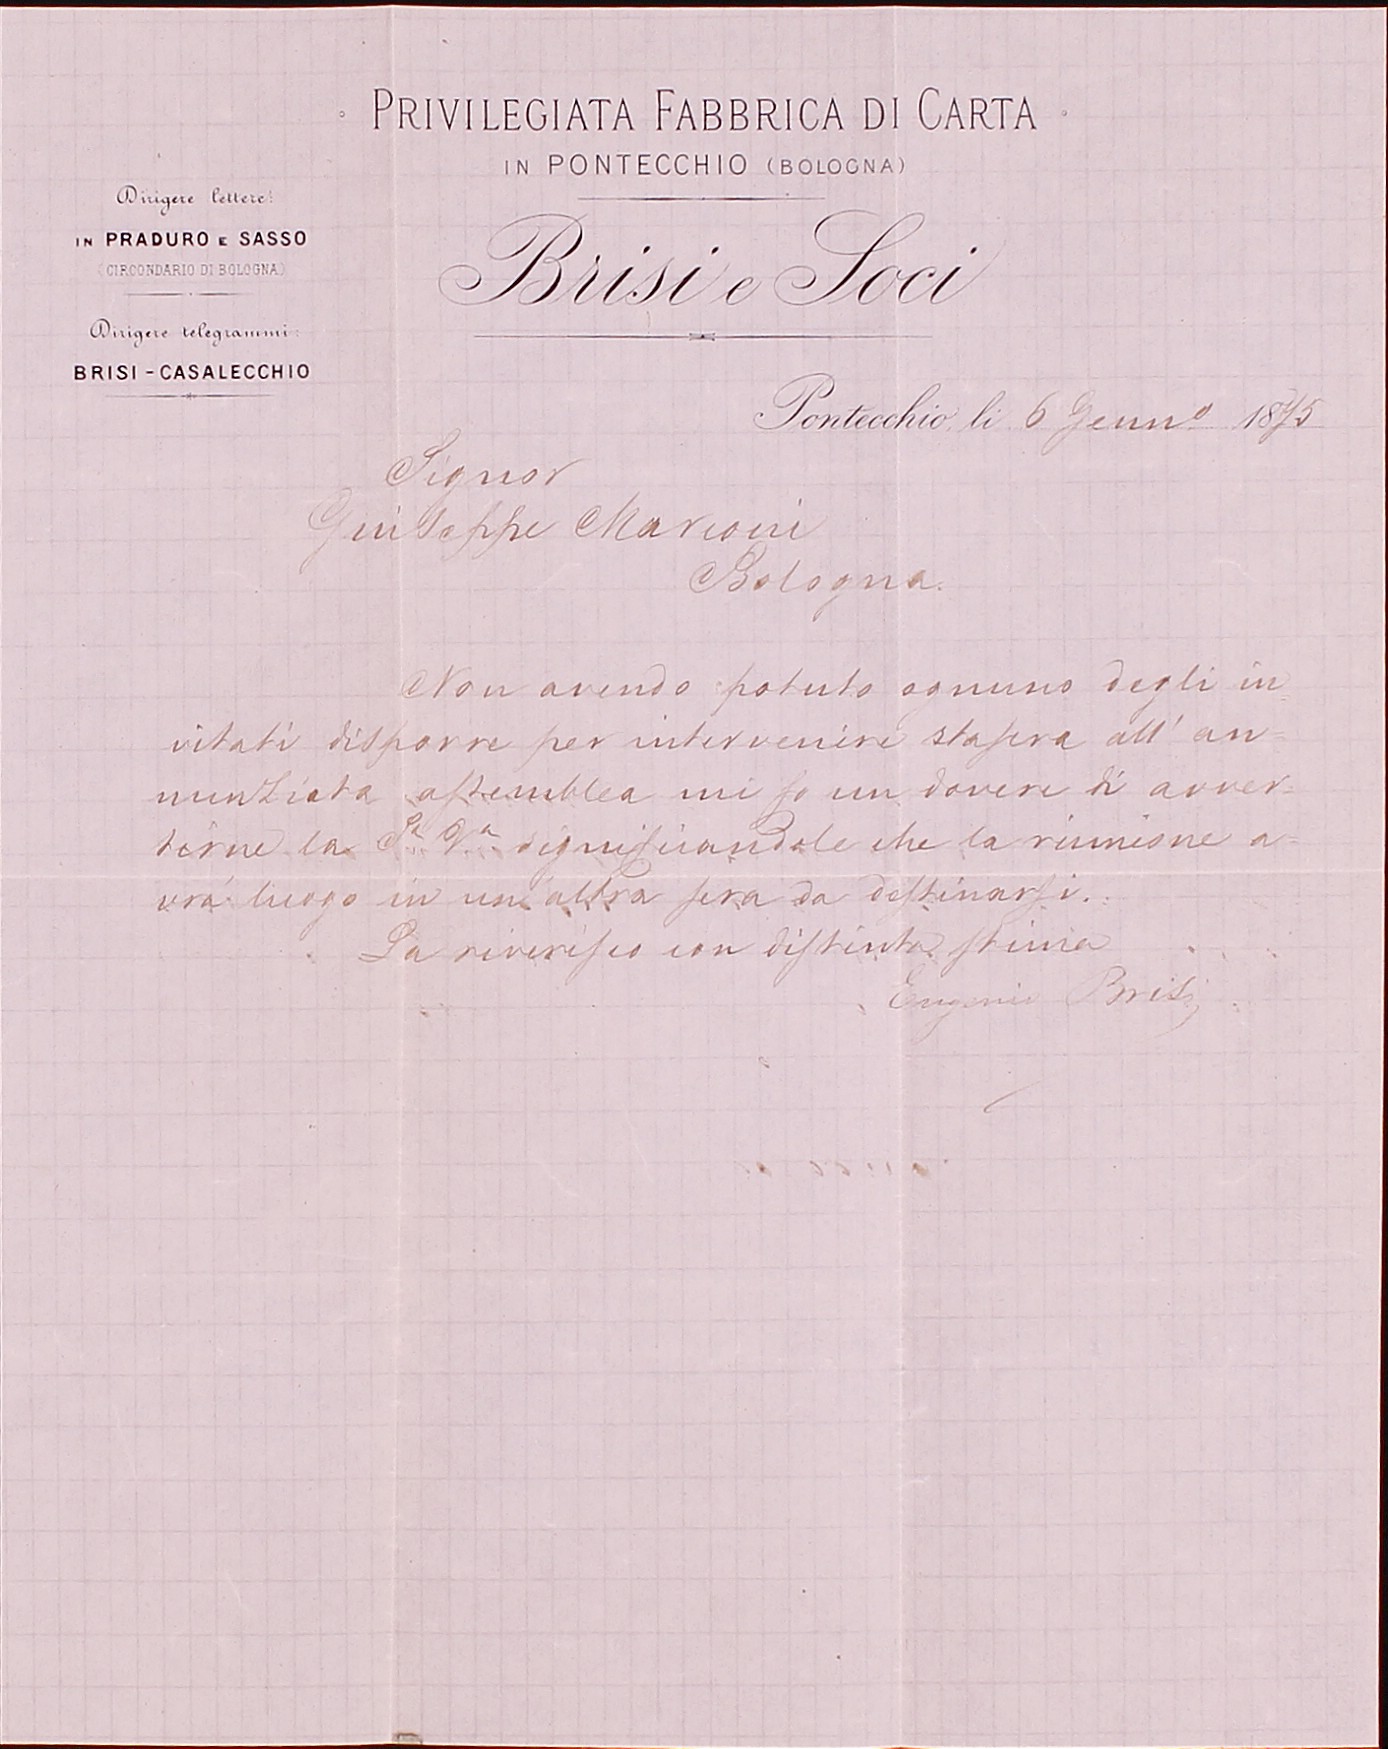 PRIVILEGIATA FABBRICA DI CARTA
IN PONTECCHIO (BOLOGNA)
Brisi e Soci
Dirigere lettere:
IN PRADURO E SASSO
(CIRCONDARIO DI BOLOGNA)
Dirigere telegrammi:
BRISI - CASALECCHIO
Pontecchio, li 6 Genno 1875
Signor
Giuseppe Marconi
Bologna.
Non avendo potuto ognuno degli in=
vitati disporre per intervenire stasera all' an=
nunziata assemblea mi fo un dovere di avver=
tirne la Sa. Va. significandole che la riunione a=
vrà luogo in un'altra sera da destinarsi.
La riverisco con distinta stima
Eugenio Brisi